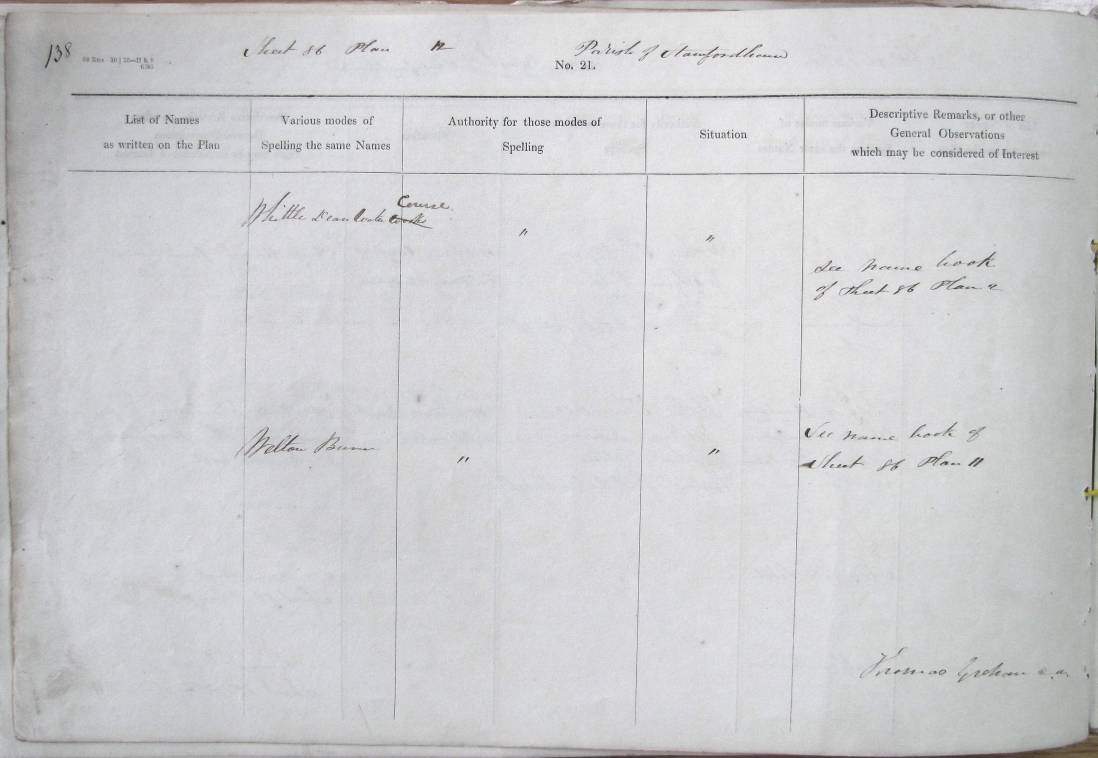 138
Sheet 86 Plan 12 Parish of Stamfordham
No. 21.
List of Names
as written on the Plan
Various modes of
Spelling the same Names
Authority for those modes of
Spelling
Situation
Descriptive Remarks, or other
General Observations
which may be considered of Interest
Course
Whittle Dean Water Cook
" "
see name book
of sheet 86 Plan
Welton Burn " " See name book of
Sheet 86 Plan 11
Thomas